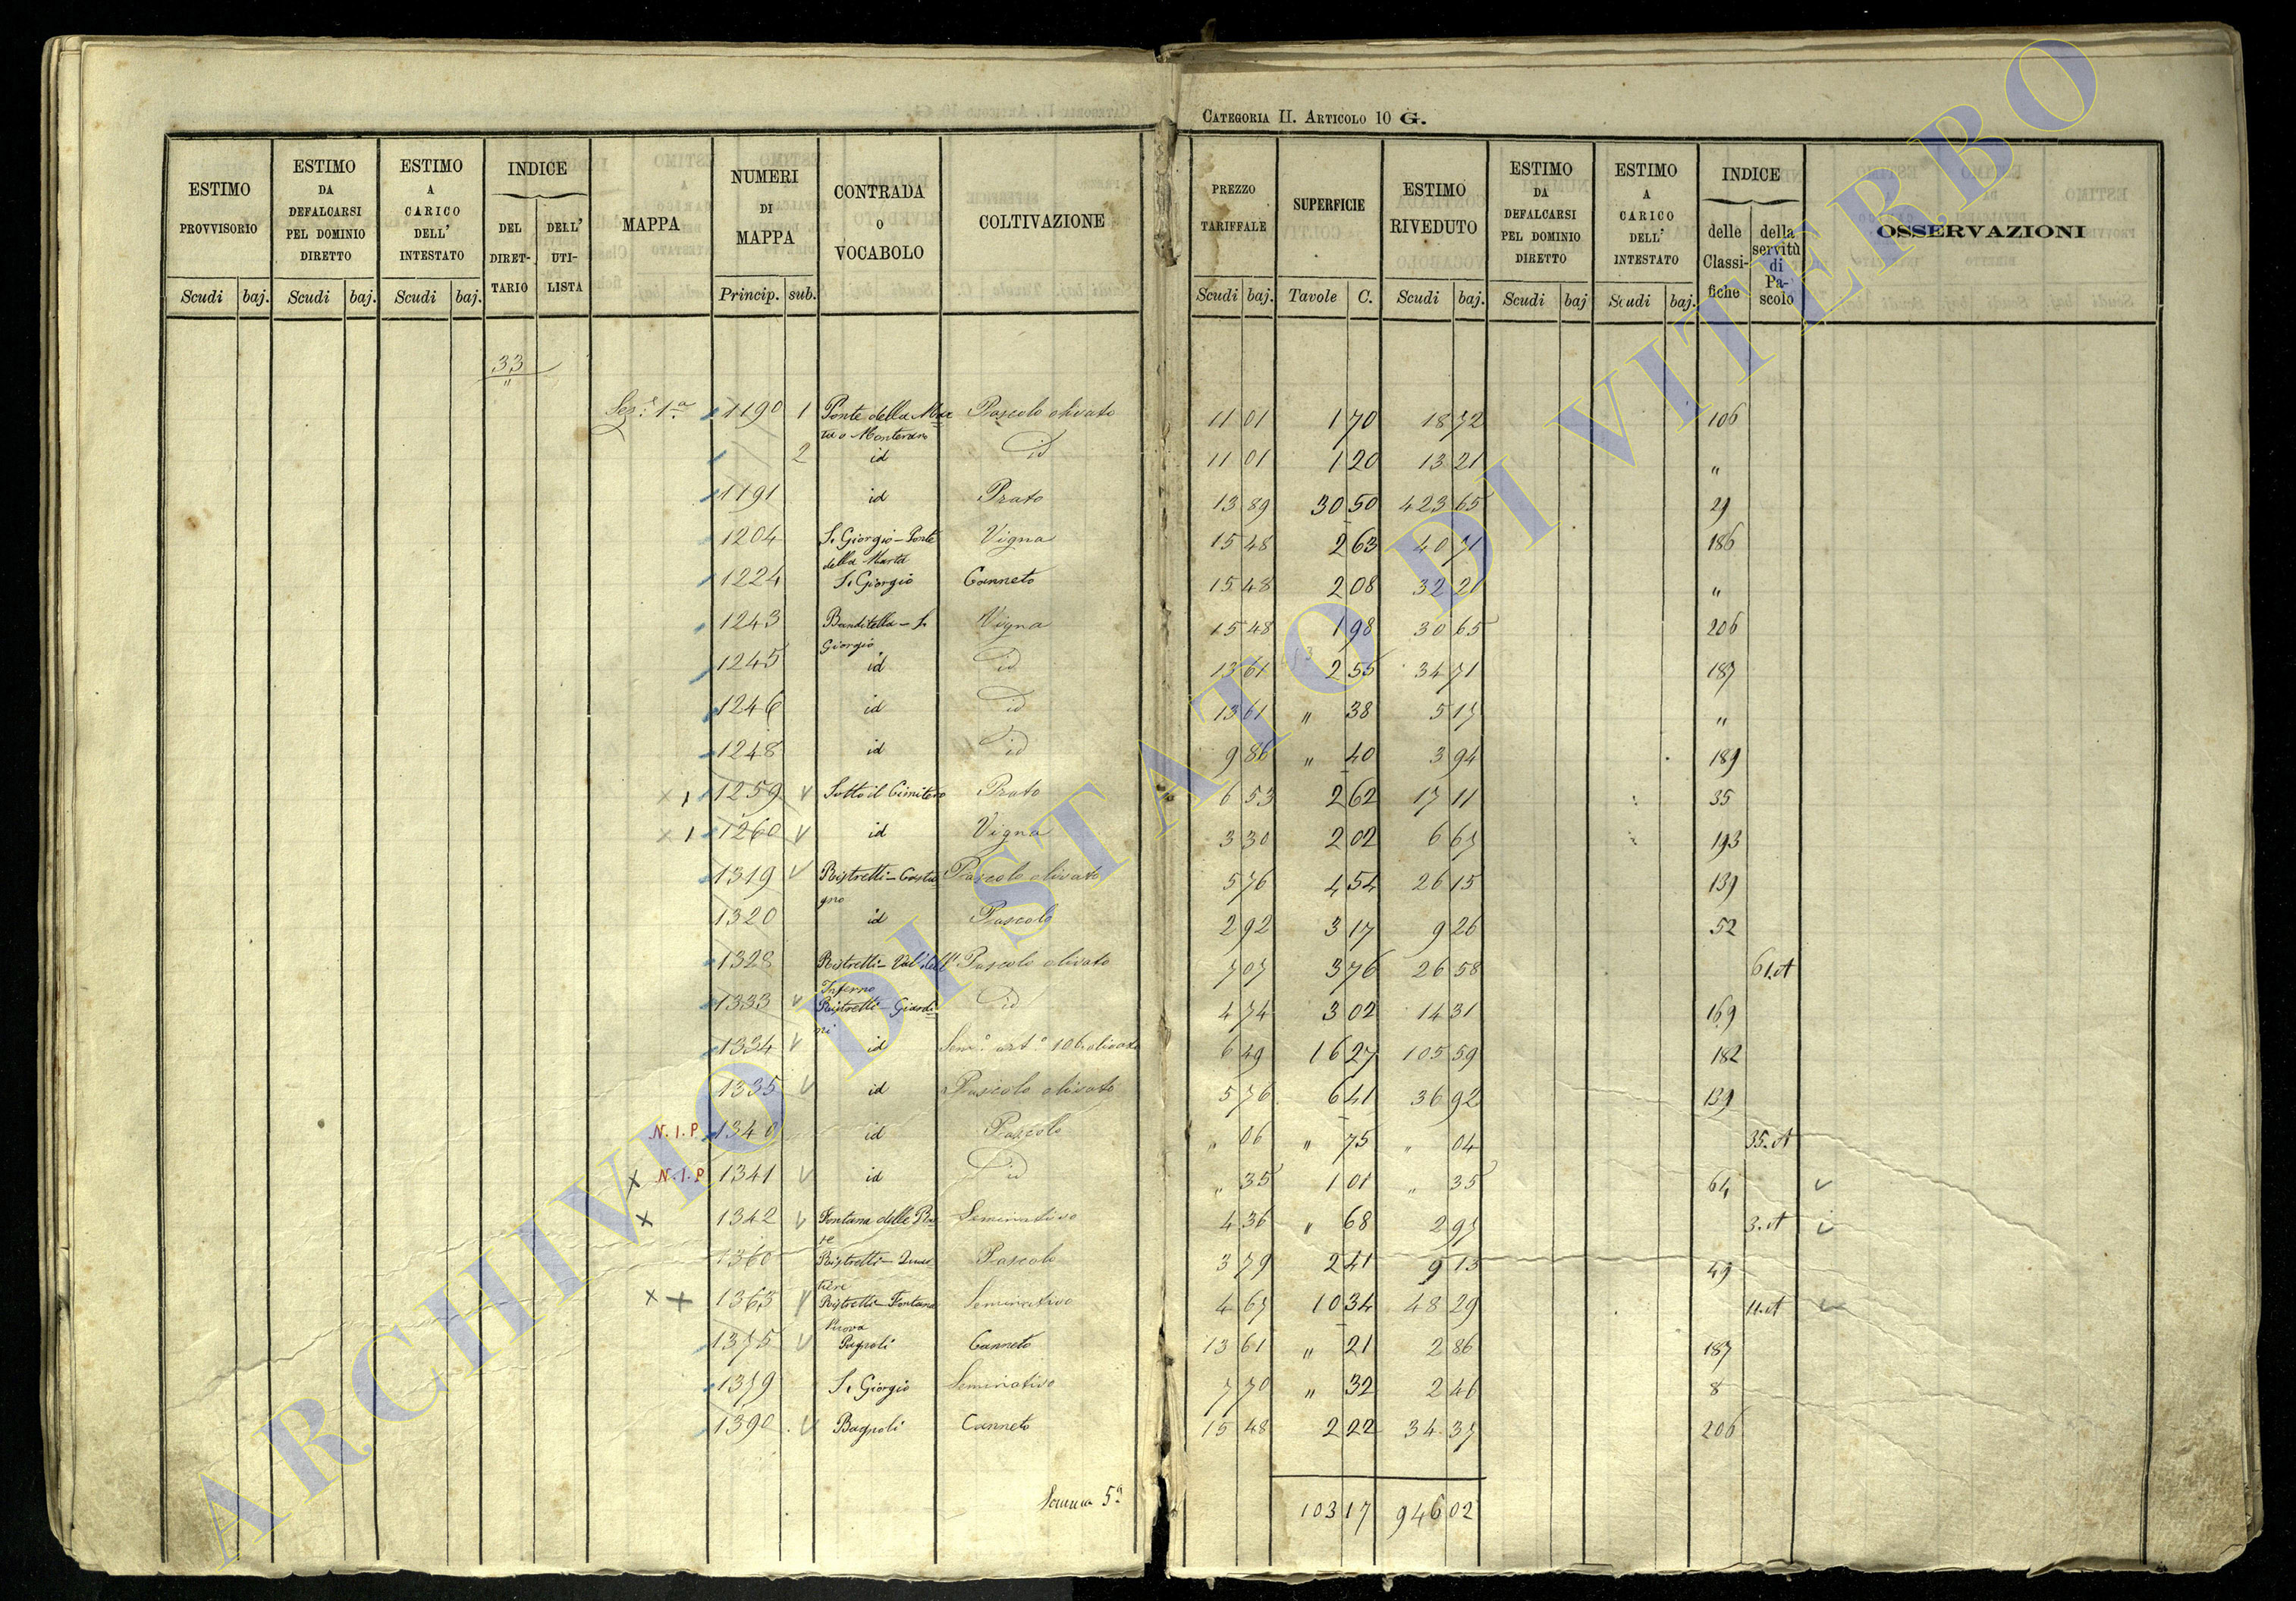 CATEGORIA II. ARTICOLO 10 G.
ESTIMO PROVVISORIO | ESTIMO DA DEFALCARSI PEL DOMINIO DIRETTO | ESTIMO A CARICO DELL' INTESTATO | INDICE DEL DIRETTARIO | DELL' UTILISTA | MAPPA | NUMERI DI MAPPA | CONTRADA O VOCABOLO | COLTIVAZIONE | PREZZO TARIFFALE | SUPERFICIE | ESTIMO RIVEDUTO | ESTIMO DA DEFALCARSI PEL DOMINIO DIRETTO | ESTIMO A CARICO DELL' INTESTATO | INDICE delle Classifiche | della servitù di Pascolo | OSSERVAZIONI
Scudi | baj. | Scudi | baj. | Scudi | baj. | Princip. | sub. | Scudi | baj. | Tavole | C. | Scudi | baj. | Scudi | baj | Scudi | baj.
33
"
Sez.e 1.a 1190 1 Ponte della Mar= Pascolo olivato 11 01 1 70 18 72 106
ta o Monterano
2 id id 11 01 1 20 13 21 "
1191 id Prato 13 89 30 50 423 65 29
1204 S. Giorgio - Ponte Vigna 15 48 2 63 40 71 186
della Marta
1224 S. Giorgio Canneto 15 48 2 08 32 21 "
1243 Banditella - S. Vigna 15 48 1 98 30 65 206
Giorgio
1245 id id 13 61 2 55 34 71 187
1246 id id 13 61 " 38 5 17 "
1248 id id 9 86 " 40 3 94 189
x 1 1259 v Sotto il Cimitero Prato 6 53 2 62 17 11 35
x 1 1260 v id Vigna 3 30 2 02 6 67 193
1319 v Ristretti - Casta Pascolo olivato 5 76 4 54 26 15 139
gno
1320 id Pascolo 2 92 3 17 9 26 52
1328 Ristretti - Val dell' Pascolo olivato 7 07 3 76 26 58 61.A
Inferno
1333 v Ristretti - Giardi= id 4 74 3 02 14 31 169
ni
1334 v id Sem.o art.o 106 olivato 6 49 16 27 105 59 182
1335 v id Pascolo olivato 5 76 6 41 36 92 139
N.I.P 1340 id Pascolo " 06 " 75 " 04 35.A
x N.I.P 1341 v id id " 35 1 01 " 35 64 v
x 1342 v Fontana delle Seminativo 4 36 " 68 2 97 3.A v
1360 Ristretti - Pascolo 3 79 2 41 9 13 49
tiere
x x 1363 v Ristretti - Fontana Seminativo 4 67 10 34 48 29 11.A v
Nuova
1375 v Bagnoli Canneto 13 61 " 21 2 86 187
1379 S. Giorgio Seminativo 7 70 " 32 2 46 8
1390 v Bagnoli Canneto 15 48 2 22 34 37 206
Somma 5a 103 17 946 02
ARCHIVIO DI STATO DI VITERBO